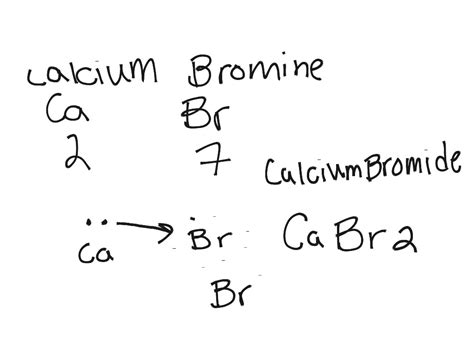 Calcium Bromine
Ca Br
2 7
Calcium Bromide
Ca Br CaBr2
Br